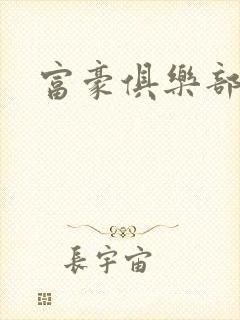 富豪俱樂部
長宇宙